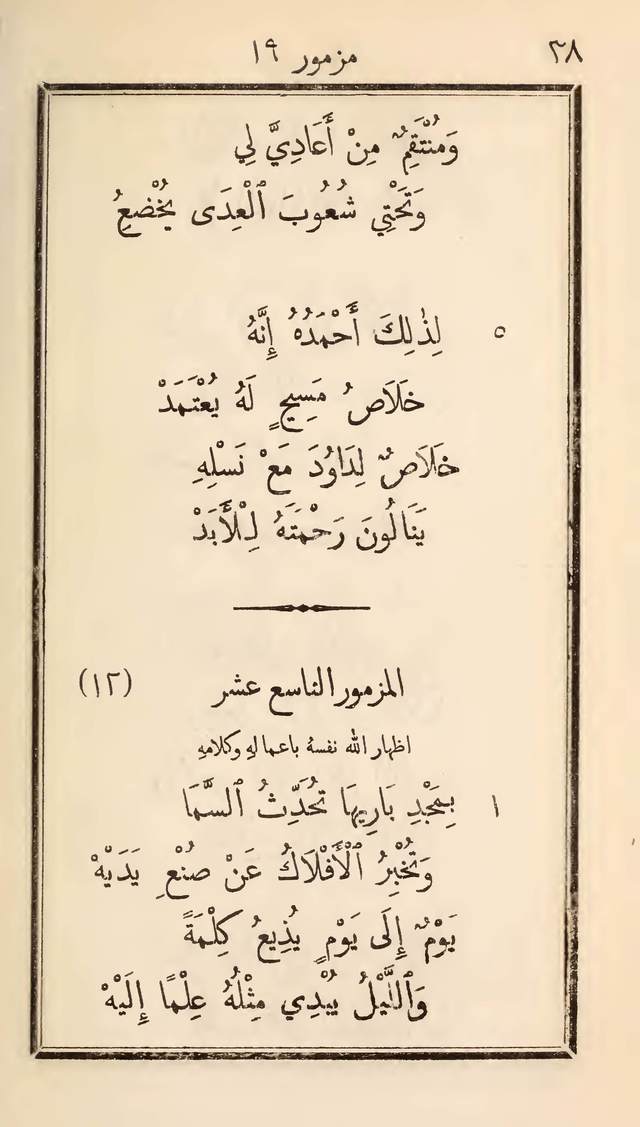 ٣٨ مزمور ١٩
وَمُنْتَقِمٌ مِنْ أَعَادِيَّ لِي
وَتَحْتِي شُعُوبَ ٱلْعِدَى يُخْضِعُ
٥ لِذٰلِكَ أَحْمَدُهُ إِنَّهُ
خَلَاصُ مَسِيحٍ لَهُ يُعْتَمَدْ
خَلَاصٌ لِدَاوُدَ مَعْ نَسْلِهِ
يَنَالُونَ رَحْمَتَهُ لِلْأَبَدْ
المزمور الناسع عشر (١٢)
اظهار الله نفسهُ باعمالهِ وكلامهِ
١ بِمَجْدِ بَارِيهَا تُحَدِّثُ ٱلسَّمَا
وَتُخْبِرُ ٱلْأَفْلَاكُ عَنْ صُنْعِ يَدَيْهْ
يَوْمٌ إِلَى يَوْمٍ يُذِيعُ كِلْمَةً
وَٱللَّيْلُ يُبْدِي مِثْلُهُ عِلْمًا إِلَيْهْ